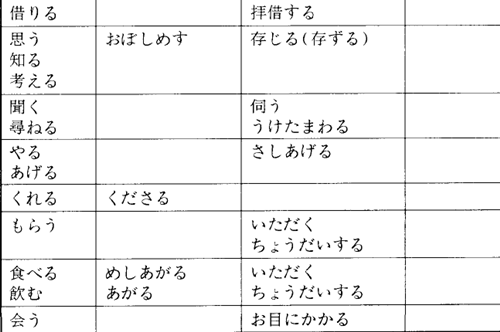 借りる 拝借する
思う おぼしめす 存じる(存ずる)
知る
考える
聞く 伺う
尋ねる うけたまわる
やる さしあげる
あげる
くれる くださる
もらう いただく
ちょうだいする
食べる めしあがる いただく
飲む あがる ちょうだいする
会う お目にかかる